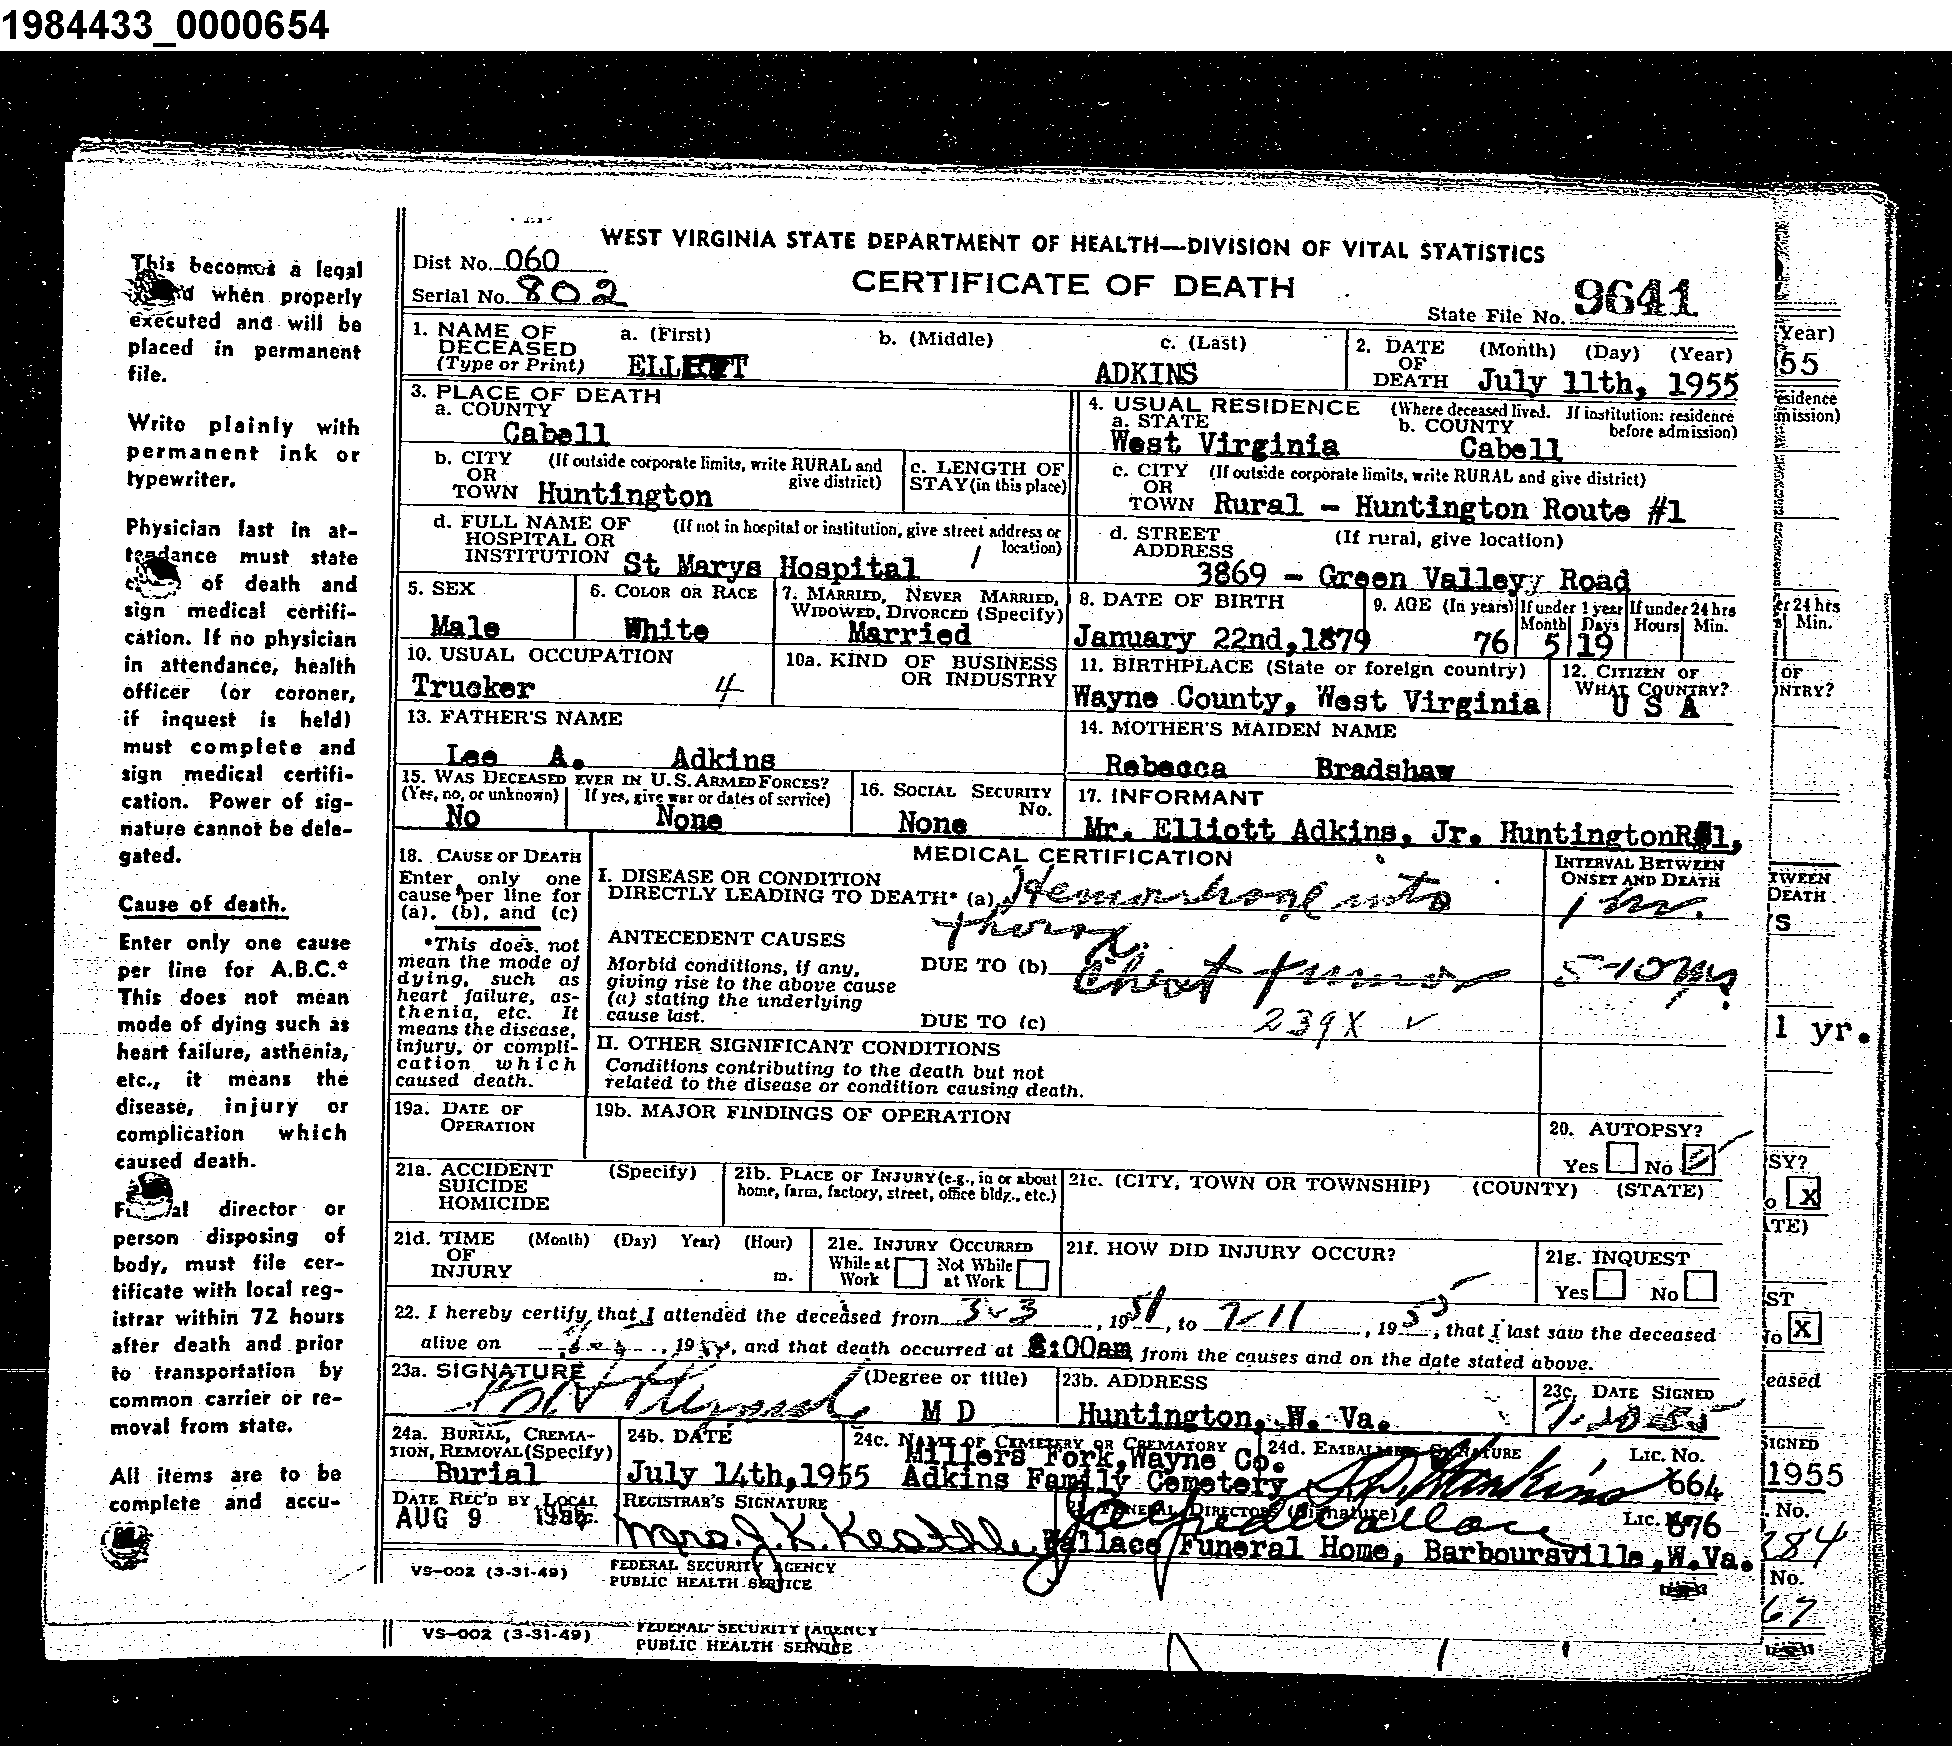 1984433_0000654
WEST VIRGINIA STATE DEPARTMENT OF HEALTH—DIVISION OF VITAL STATISTICS
CERTIFICATE OF DEATH
Dist No. 060
Serial No. 802
State File No. 9641
This becomes a legal
when properly
executed and will be
placed in permanent
file.
Write plainly with
permanent ink or
typewriter.
Physician last in at-
tendance must state
of death and
sign medical certifi-
cation. If no physician
in attendance, health
officer (or coroner,
if inquest is held)
must complete and
sign medical certifi-
cation. Power of sig-
nature cannot be dele-
gated.
Cause of death.
Enter only one cause
per line for A.B.C.*
This does not mean
mode of dying such as
heart failure, asthenia,
etc., it means the
disease, injury or
complication which
caused death.
director or
person disposing of
body, must file cer-
tificate with local reg-
istrar within 72 hours
after death and prior
to transportation by
common carrier or re-
moval from state.
All items are to be
complete and accu-
1. NAME OF DECEASED (Type or Print)
a. (First) b. (Middle) c. (Last)
ADKINS
2. DATE OF DEATH (Month) (Day) (Year)
July 11th, 1955
3. PLACE OF DEATH
a. COUNTY
Cabell
b. CITY OR TOWN (If outside corporate limits, write RURAL and give district)
Huntington
c. LENGTH OF STAY (in this place)
d. FULL NAME OF HOSPITAL OR INSTITUTION (If not in hospital or institution, give street address or location)
St Marys Hospital 1
4. USUAL RESIDENCE (Where deceased lived. If institution: residence before admission)
a. STATE b. COUNTY
West Virginia Cabell
c. CITY OR TOWN (If outside corporate limits, write RURAL and give district)
Rural - Huntington Route #1
d. STREET ADDRESS (If rural, give location)
3869 - Green Valley, Road
5. SEX
Male
6. COLOR OR RACE
White
7. MARRIED, NEVER MARRIED, WIDOWED, DIVORCED (Specify)
Married
8. DATE OF BIRTH
January 22nd,1879
9. AGE (In years) If under 1 year If under 24 hrs
Month Days Hours Min.
76 5 19
10. USUAL OCCUPATION
Trucker 4
10a. KIND OF BUSINESS OR INDUSTRY
11. BIRTHPLACE (State or foreign country)
Wayne County, West Virginia
12. CITIZEN OF WHAT COUNTRY?
U S A
13. FATHER'S NAME
Lee A. Adkins
14. MOTHER'S MAIDEN NAME
Rebecca Bradshaw
15. WAS DECEASED EVER IN U.S. ARMED FORCES?
(Yes, no, or unknown) If yes, give war or dates of service)
No None
16. SOCIAL SECURITY No.
None
17. INFORMANT
Mr. Elliott Adkins, Jr. Huntington
MEDICAL CERTIFICATION
18. CAUSE OF DEATH
Enter only one
cause per line for
(a), (b), and (c)
*This does not
mean the mode of
dying, such as
heart failure, as-
thenia, etc. It
means the disease,
injury, or compli-
cation which
caused death.
I. DISEASE OR CONDITION
DIRECTLY LEADING TO DEATH* (a) Hemorrhage into
thorax
ANTECEDENT CAUSES
Morbid conditions, if any,
giving rise to the above cause
(a) stating the underlying
cause last.
DUE TO (b) Chest tumor
DUE TO (c)
239X ✓
INTERVAL BETWEEN ONSET AND DEATH
1 hr.
5-10 yrs
II. OTHER SIGNIFICANT CONDITIONS
Conditions contributing to the death but not
related to the disease or condition causing death.
19a. DATE OF OPERATION
19b. MAJOR FINDINGS OF OPERATION
20. AUTOPSY?
Yes No
21a. ACCIDENT SUICIDE HOMICIDE (Specify)
21b. PLACE OF INJURY (e.g., in or about home, farm, factory, street, office bldg., etc.)
21c. (CITY, TOWN OR TOWNSHIP) (COUNTY) (STATE)
21d. TIME OF INJURY (Month) (Day) Year) (Hour) m.
21e. INJURY OCCURRED
While at Work Not While at Work
21f. HOW DID INJURY OCCUR?
21g. INQUEST
Yes No
22. I hereby certify that I attended the deceased from 3-3, 1951, to 7-11, 1955, that I last saw the deceased
alive on , 19 , and that death occurred at 8:00am from the causes and on the date stated above.
23a. SIGNATURE (Degree or title)
M D
23b. ADDRESS
Huntington, W. Va.
23c. DATE SIGNED
7-20-55
24a. BURIAL, CREMA-TION, REMOVAL (Specify)
Burial
24b. DATE
July 14th,1955
24c. NAME OF CEMETERY OR CREMATORY
Millers Fork,Wayne Co.
Adkins Family Cemetery
24d. EMBALMER'S SIGNATURE Lic. No.
664
DATE REC'D BY LOCAL
AUG 9
REGISTRAR'S SIGNATURE
Mrs. J. K.
FUNERAL DIRECTOR (Signature) Lic.
676
Wallace Funeral Home, Barboursville,W.Va.
VS-002 (3-31-49)
FEDERAL SECURITY AGENCY
PUBLIC HEALTH SERVICE
VS-002 (3-31-49)
FEDERAL SECURITY AGENCY
PUBLIC HEALTH SERVICE
Year)
55
esidence
mission)
24 hrs
Min.
OF
NTRY?
TWEEN
DEATH
'S
1 yr.
SY?
o X
ATE)
ST
No X
eased
SIGNED
1955
No.
384
No.
67